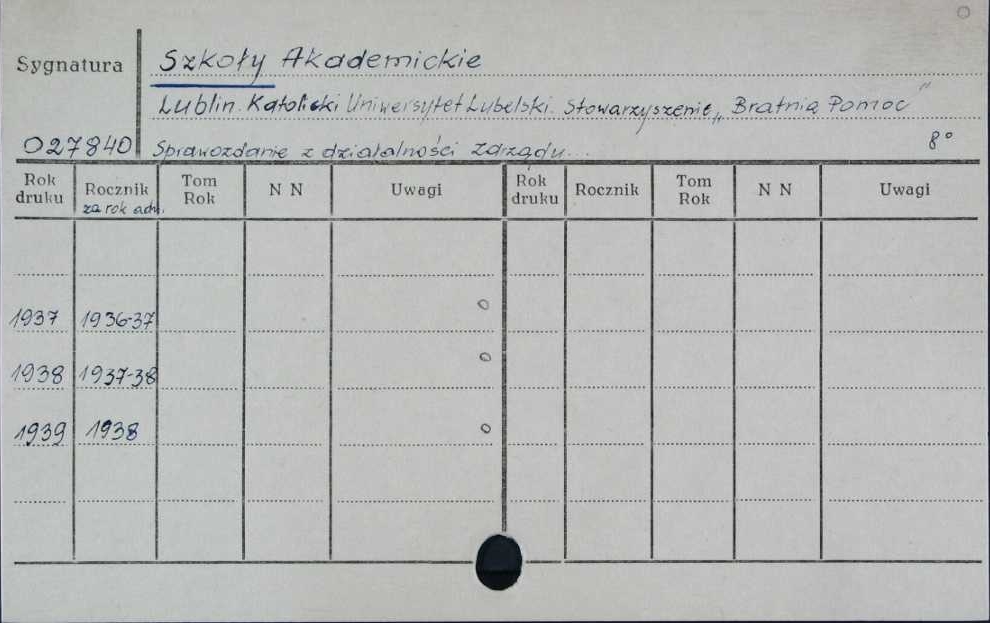 Sygnatura
Szkoły Akademickie
Lublin. Katolicki Uniwersytet Lubelski. Stowarzyszenie „Bratnia Pomoc"
027840 Sprawozdanie z działalności zarządu... 8°
Rok druku Rocznik za rok adm. Tom Rok N N Uwagi Rok druku Rocznik Tom Rok N N Uwagi
1937 1936-37 0
1938 1937-38 0
1939 1938 0